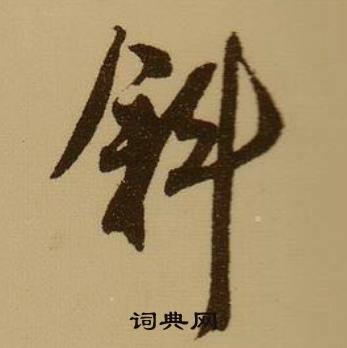 斜
词典网